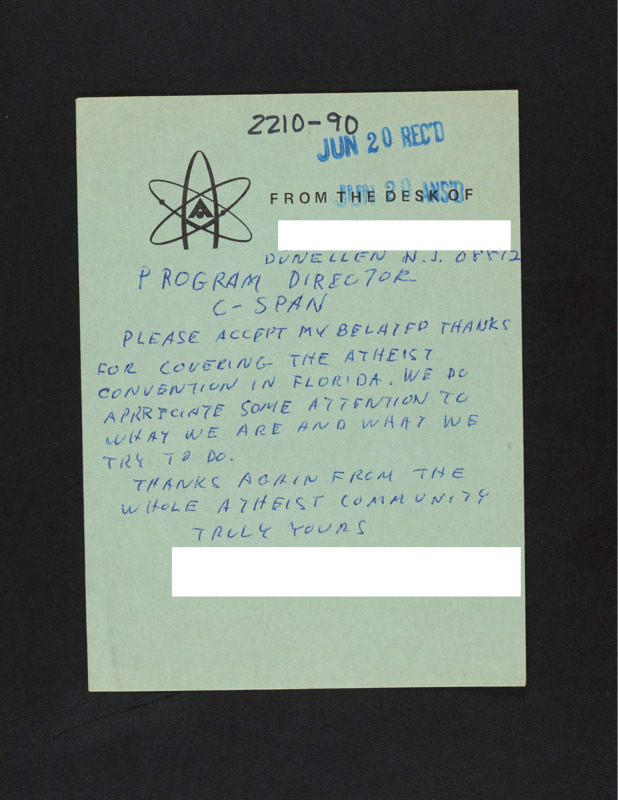 2210-90
JUN 20 REC'D
JUN 20 ANS'D
FROM THE DESK OF
DUNELLEN N.J. 08812
PROGRAM DIRECTOR
C-SPAN
PLEASE ACCEPT MY BELATED THANKS
FOR COVERING THE ATHEIST
CONVENTION IN FLORIDA. WE DO
APRRECIATE SOME ATTENTION TO
WHAT WE ARE AND WHAT WE
TRY TO DO.
THANKS AGAIN FROM THE
WHOLE ATHEIST COMMUNITY
TRULY YOURS